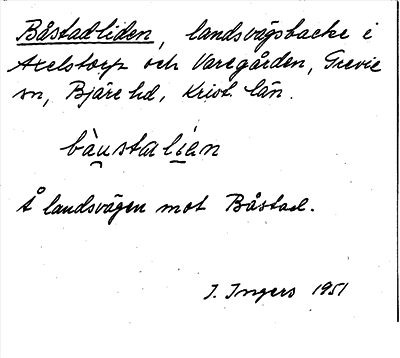 Båstadliden, landsvägsbacke i
Axelstorp och Varegården, Grevie
sn, Bjäre hd, Krist. län.
bàu̯stali̯an
Å landsvägen mot Båstad.
I. Ingers 1951